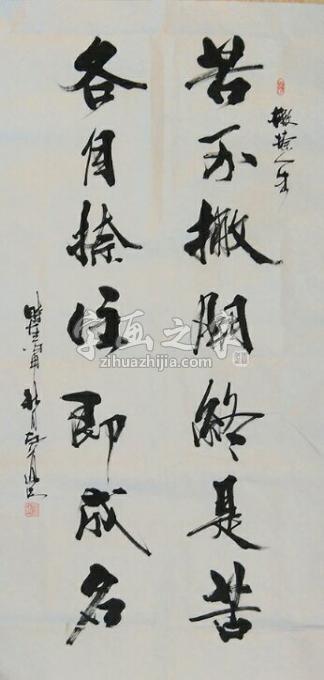 撇捺人生
苦不撇開終是苦
各自捺住即成名
字画之家
zihuazhijia.com